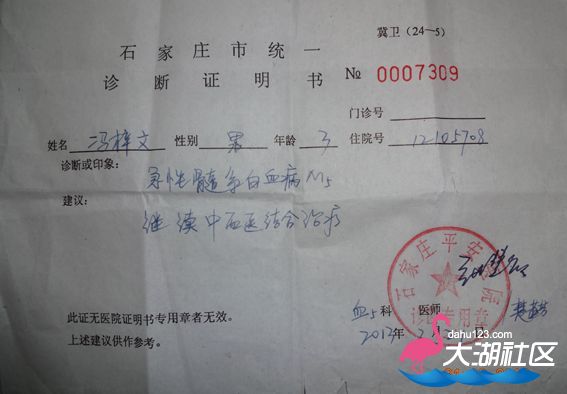 冀卫（24—5）
石家庄市统一
诊断证明书 № 0007309
门诊号
姓名 冯梓文 性别 男 年龄 3 住院号 12105708
诊断或印象：
急性髓系白血病M5
建议：
继续中西医结合治疗
石家庄平安医院
诊断专用章
血5科 医师
2012年
此证无医院证明书专用章者无效。
上述建议供作参考。
dahu123.com
大湖社区